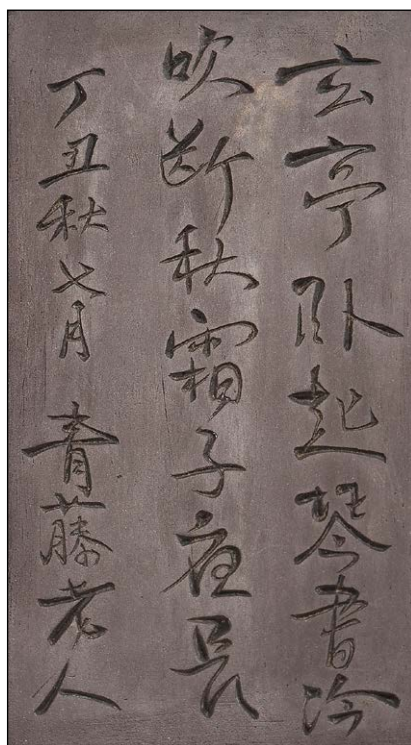 玄亭卧起琴书冷
吹断秋霜子夜长
丁丑秋七月 青藤老人